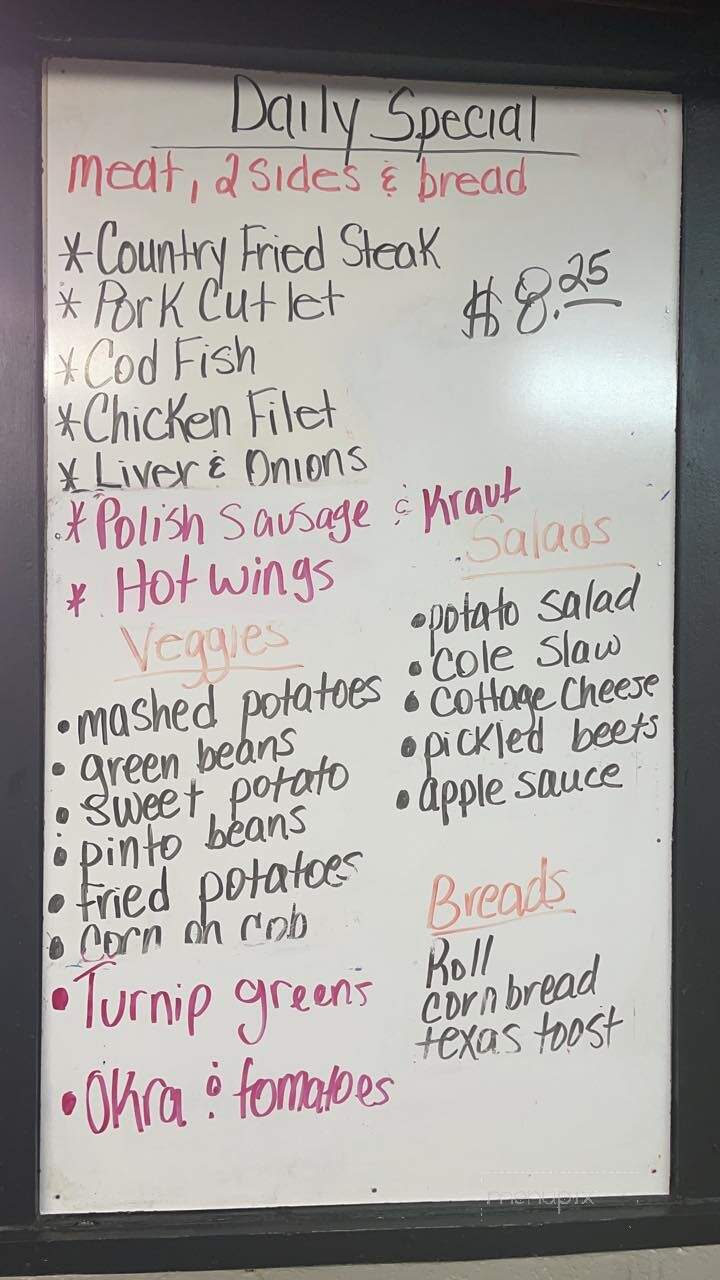 Daily Special
meat, 2 sides & bread
* Country Fried Steak
$8.25
* Pork Cutlet
* Cod Fish
* Chicken Filet
* Liver & Onions
* Polish Sausage & Kraut
* Hot wings
Veggies
• mashed potatoes
• green beans
• sweet potato
• pinto beans
• fried potatoes
• corn on cob
• Turnip greens
• Okra & tomatoes
Salads
• potato salad
• Cole Slaw
• Cottage Cheese
• pickled beets
• apple sauce
Breads
Roll
cornbread
texas toost
menupix